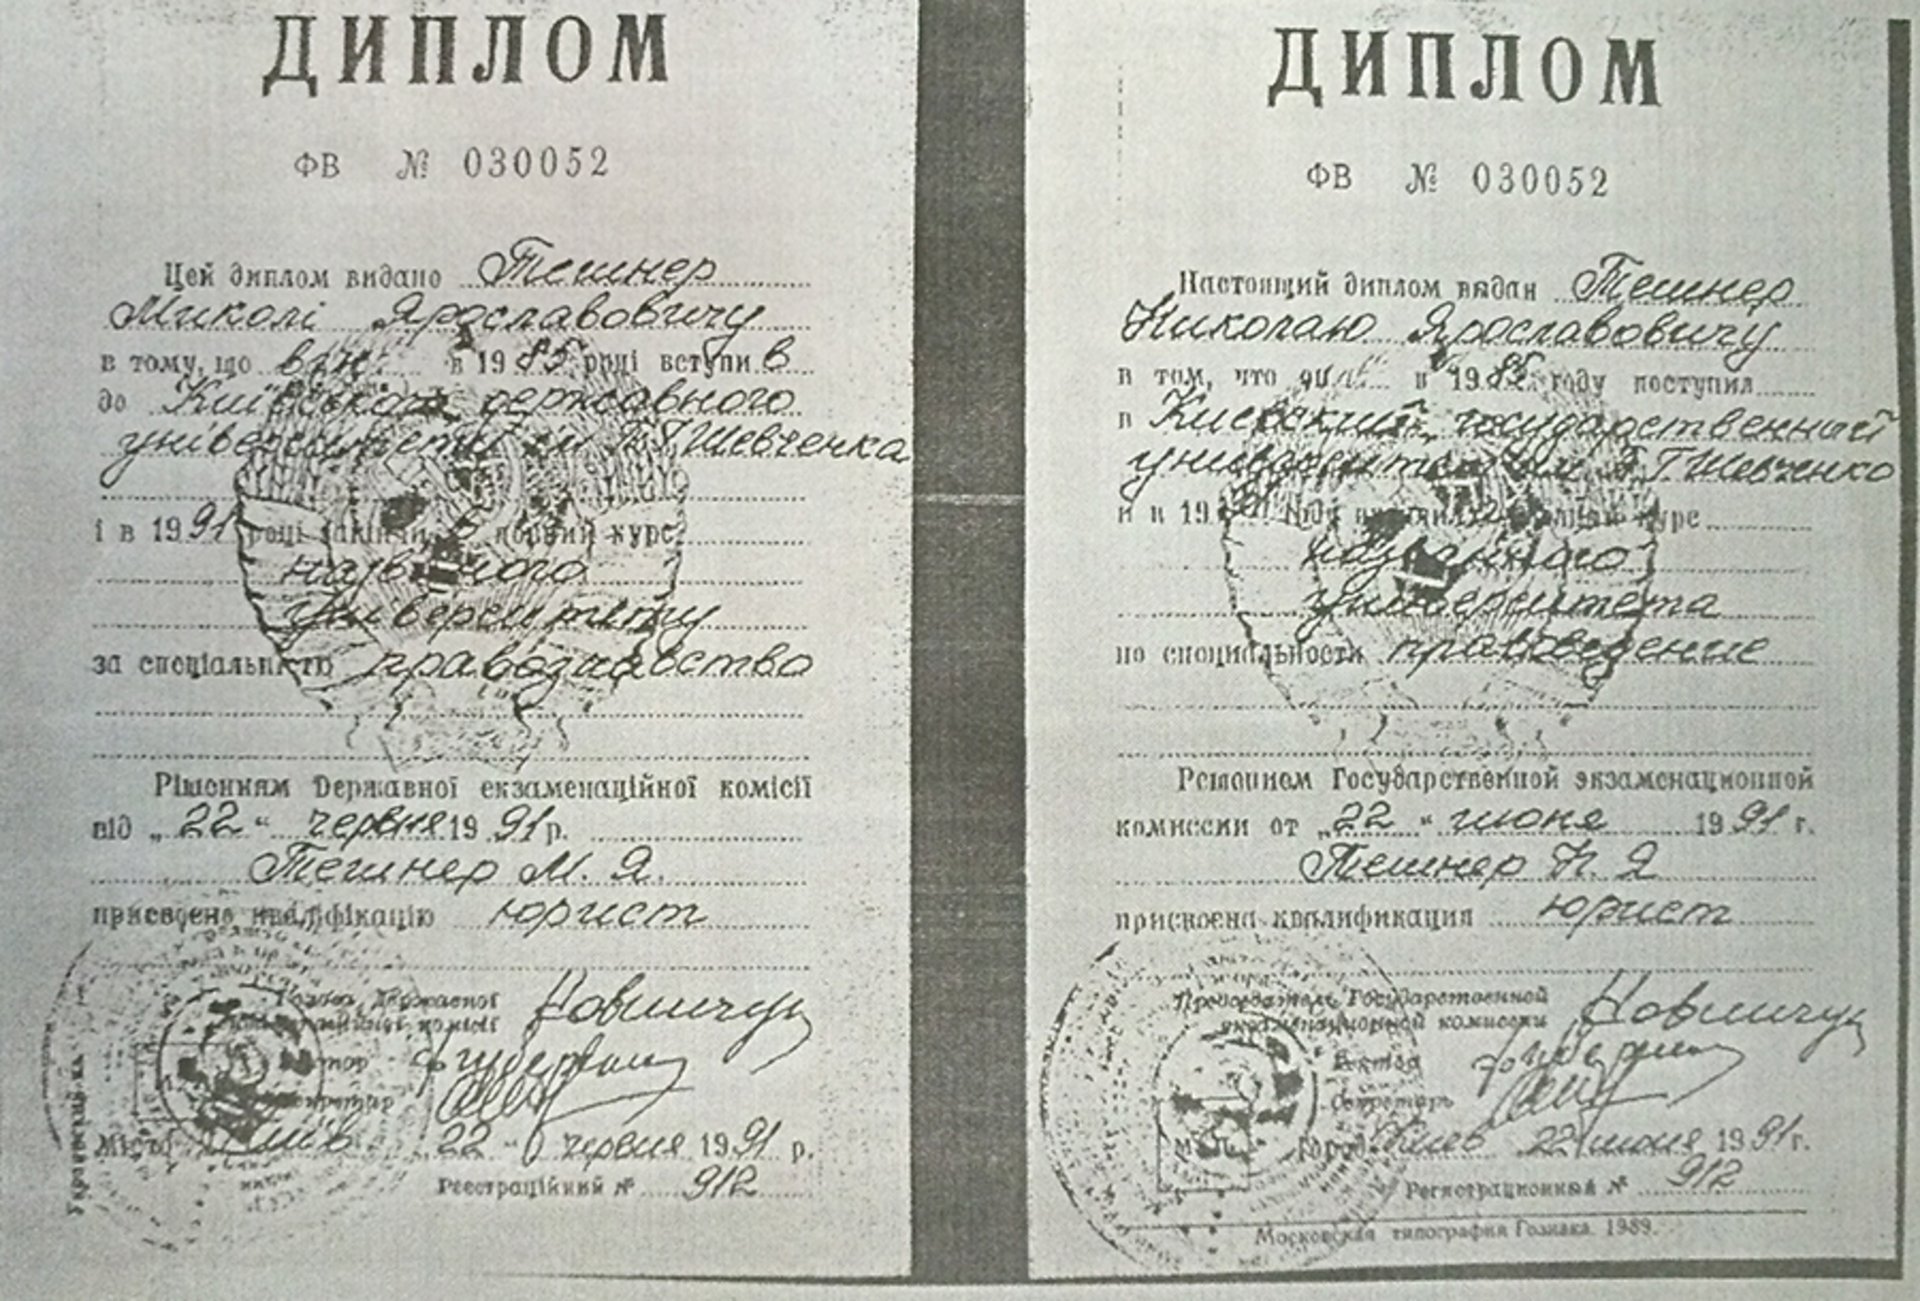 ДИПЛОМ
ФВ № 030052
Цей диплом видано Тешнер
Миколі Ярославовичу
в тому, що він в 1985 році вступив
до Київського державного
університету ім Т.Г Шевченка
і в 1991 році закінчив повний курс
названого
університету
за спеціальністю правознавство
Рішенням Державної екзаменаційної комісії
від „22“ червня 1991 р.
Тешнер М. Я.
присвоєно кваліфікацію юрист
Голова Державної
екзаменаційної комісії
Ректор
Секретар
Місто Київ 22 “ червня 1991 р.
Реєстраційний № 912
ДИПЛОМ
ФВ № 030052
Настоящий диплом выдан Тешнер
Николаю Ярославовичу
в том, что он в 1985 году поступил
в Киевский государственный
университет им Т Г Шевченко
и в 1991 году окончил полный курс
названного
университета
по специальности правоведение
Решением Государственной экзаменационной
комиссии от „22“ июня 1991 г.
Тешнер Н. Я
присвоена квалификация юрист
Председатель Государственной
экзаменационной комиссии
Ректор
Секретарь
Город Киев 22 июня 1991 г.
Регистрационный № 912
Московская типография Гознака. 1989.